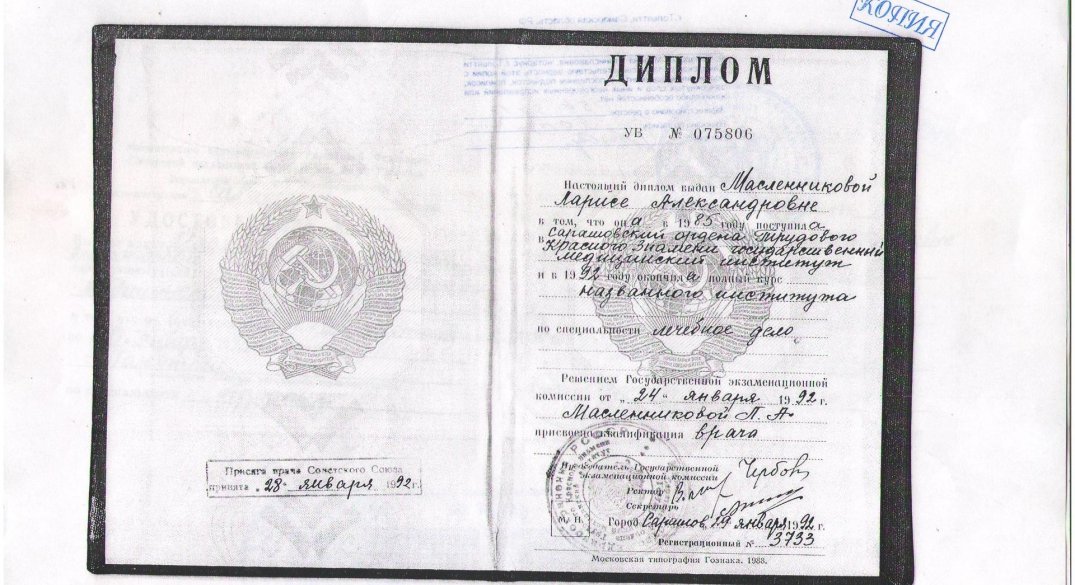 КОПИЯ
ДИПЛОМ
УВ № 075806
Настоящий диплом выдан Масленниковой
Ларисе Александровне
в том, что она в 1985 году поступила
в Саратовский ордена Трудового
Красного Знамени государственный
медицинский институт
и в 1992 году окончила полный курс
названного института
по специальности лечебное дело
Решением Государственной экзаменационной
комиссии от „24“ января 1992 г.
Масленниковой Л. А.
присвоена квалификация врача
Председатель Государственной
экзаменационной комиссии
Ректор
Секретарь
М. П. Город Саратов, 29 января 1992 г.
Регистрационный № 3733
Московская типография Гознака. 1988.
Присяга врача Советского Союза
принята „28“ января 1992 г.